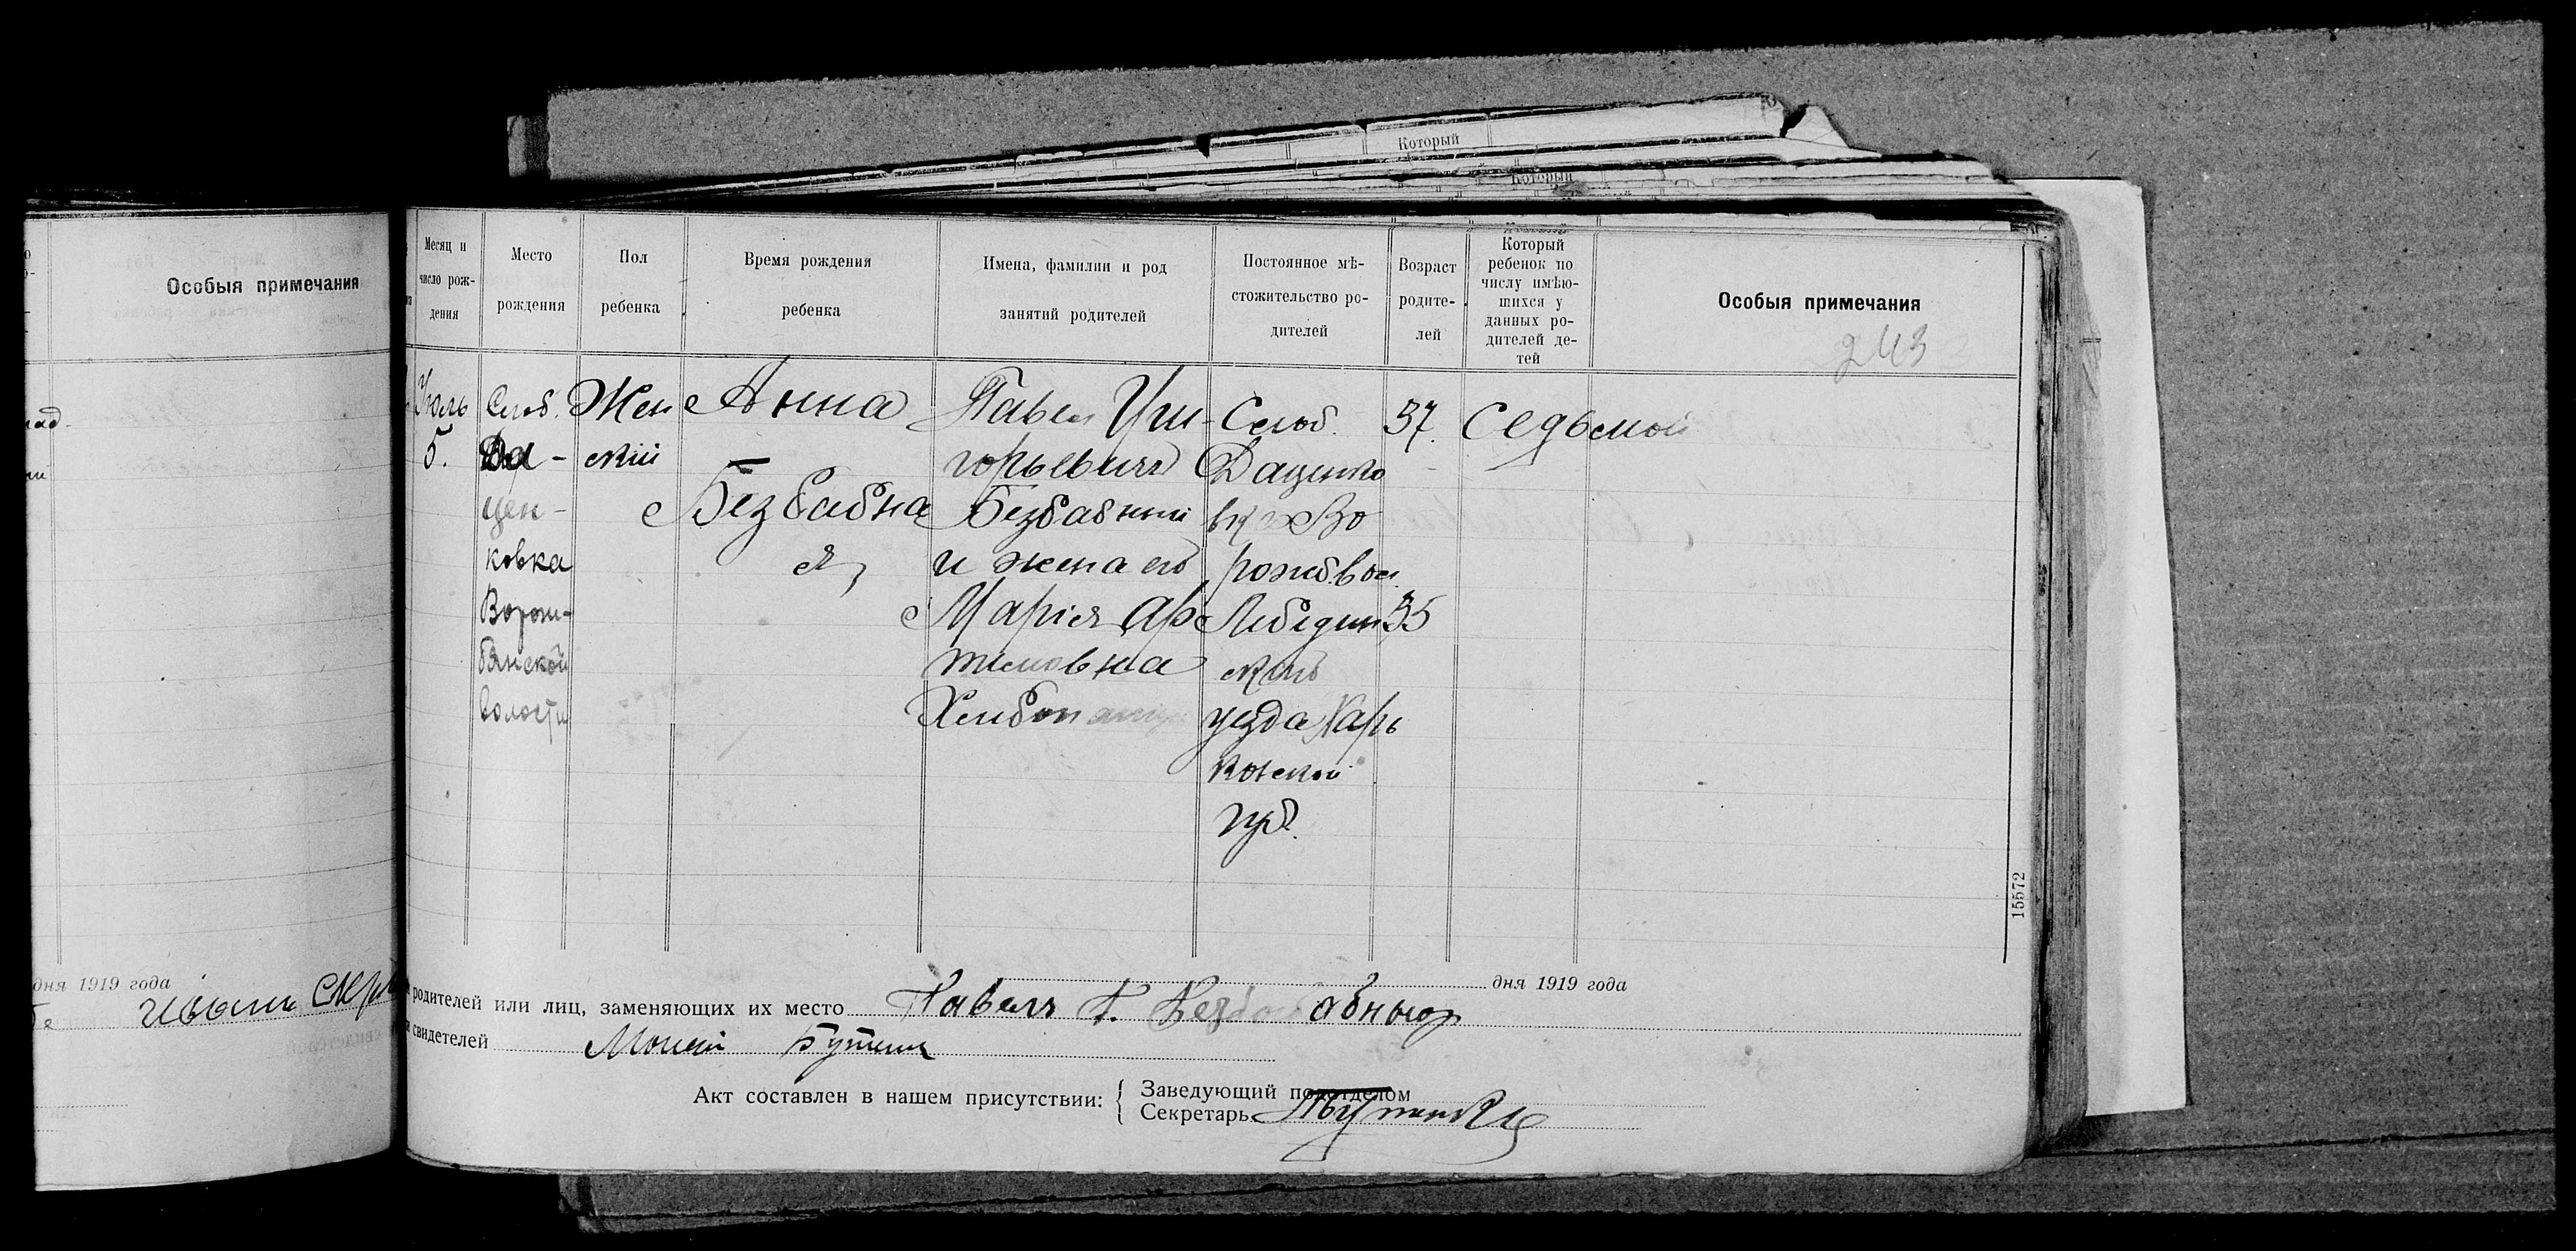 Который
Который
Особыя примечания
дня 1919 года
Месяц и число рож-дения
Место рождения
Пол ребенка
Время рождения ребенка
Имена, фамилии и род занятий родителей
Постоянное мѣ-стожительство ро-дителей
Возраст родите-лей
Который ребенок по числу имѣю-щихся у данных ро-дителей де-тей
Особыя примечания
243
Июль
5.
Слоб.
Да-
цен-
ковка
Ворож-
бянской
волости
Жен
ский
Анна
Безбабна
я,
Павел Гри-
горьевич
Безбабный
и жена его
Марiя Ар
темовна
Слоб.
Даценко
вка Во
рожб. вол.
Лебедин
ского
уезда Харь
ковской
губ.
37.
35
Седьмой
15572
дня 1919 года
родителей или лиц, заменяющих их место Павелъ Г.
свидетелей
Акт составлен в нашем присутствии:
Заведующий подотделом
Секретарь